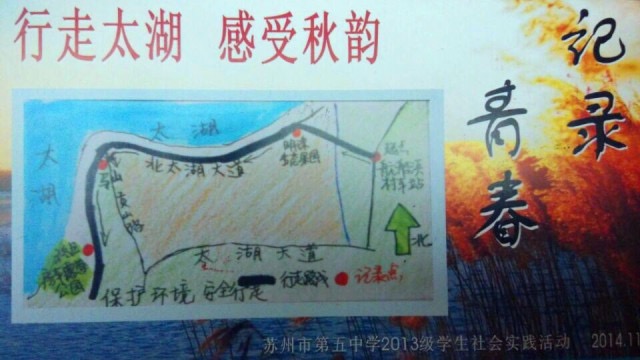 行走太湖 感受秋韵
记录
青春
太湖
太湖
北太湖大道
起点
终点
公园
太湖大道
北
行走路线
记录点
保护环境 安全行走
苏州市第五中学2013级学生社会实践活动 2014.11